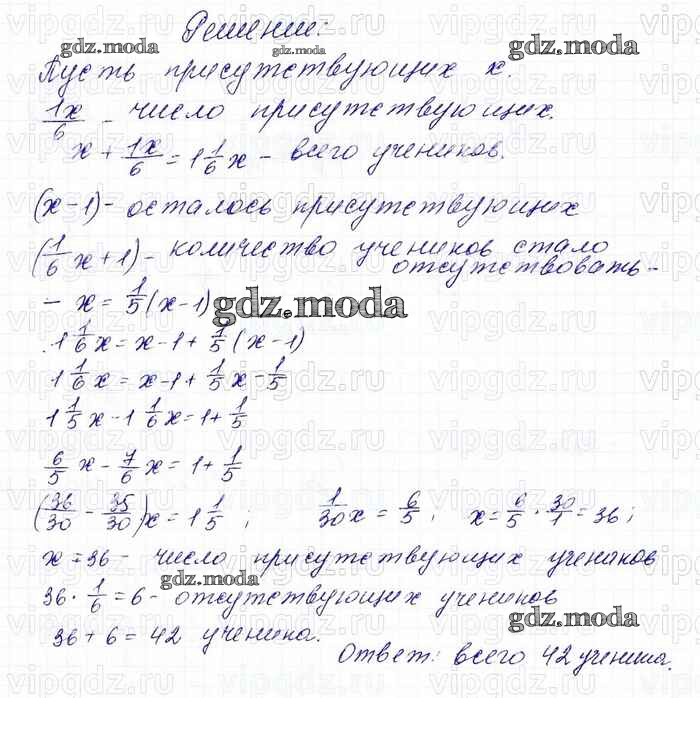 Решение:
Пусть присутствующих x.
1x/6 - число присутствующих.
x + 1x/6 = 1 1/6 x - всего учеников.
(x-1) - осталось присутствующих
(1/6 x + 1) - количество учеников стало
отсутствовать -
- x = 1/5 (x-1)
1 1/6 x = x - 1 + 1/5 (x-1)
1 1/6 x = x - 1 + 1/5 x - 1/5
1 1/5 x - 1 1/6 x = 1 + 1/5
6/5 x - 7/6 x = 1 + 1/5
(36/30 - 35/30) x = 1 1/5 ; 1/30 x = 6/5 ; x = 6/5 · 30/1 = 36 ;
x = 36 - число присутствующих учеников
36 · 1/6 = 6 - отсутствующих учеников
36 + 6 = 42 ученика.
Ответ: всего 42 ученика.
gdz.moda
gdz.moda
gdz.moda
gdz.moda
gdz.moda
gdz.moda
gdz.moda
gdz.moda
vipgdz.ru